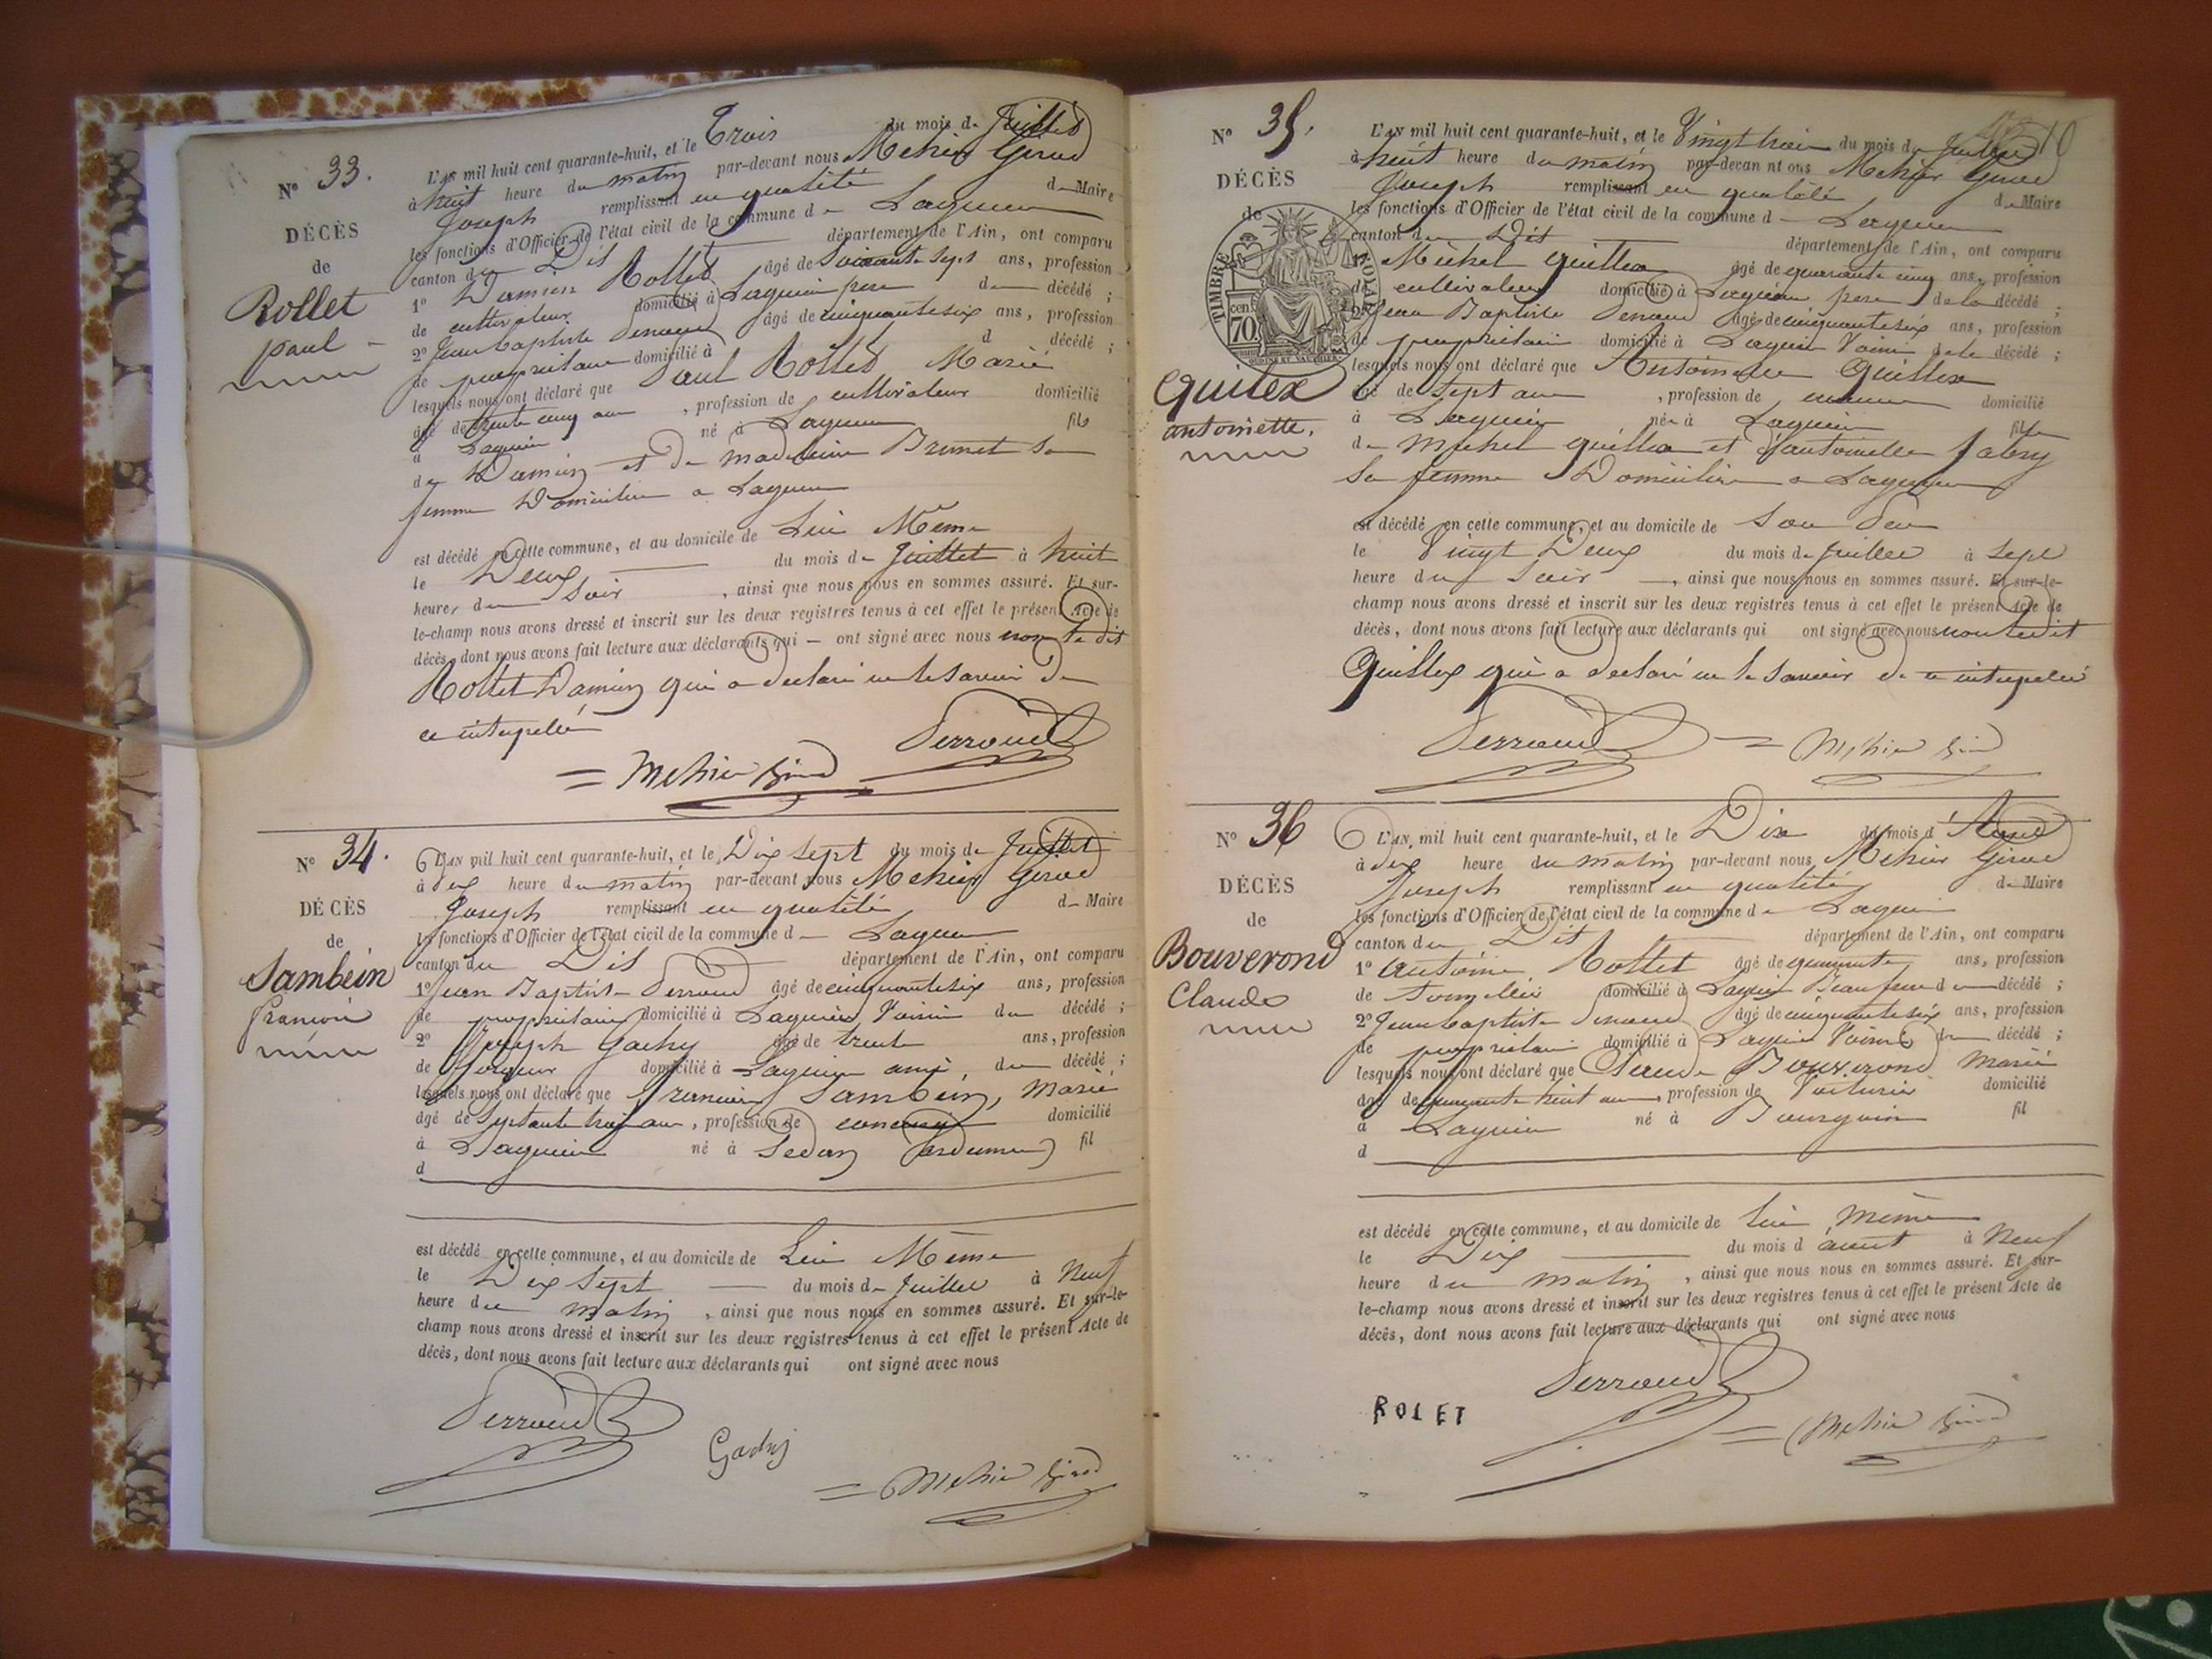 N° 33.
DÉCÈS
de
Rollet
paul
L'AN mil huit cent quarante-huit, et le Trois du mois de Juillet
à huit heure du matin par-devant nous Mehier Girod
Joseph remplissant en qualité de Maire
les fonctions d'Officier de l'état civil de la commune de Lagnieu
canton du Dit département de l'Ain, ont comparu
1° Damien Rollet âgé de Soixante Sept ans, profession
de cultivateur domicilié à Lagnieu père du décédé ;
2° Jean baptiste Perroud âgé de cinquante six ans, profession
de propriétaire domicilié à d décédé ;
lesquels nous ont déclaré que Paul Rollet Marié
âgé de trente cinq ans, profession de cultivateur domicilié
à Lagnieu né à Lagnieu fils
de Damien et de madeleine Brunet sa
femme Domiciliés a Lagnieu
est décédé en cette commune, et au domicile de Lui Même
le Deux du mois de Juillet à huit
heures du Soir, ainsi que nous nous en sommes assuré. Et sur-
le-champ nous avons dressé et inscrit sur les deux registres tenus à cet effet le présent Acte de
décès, dont nous avons fait lecture aux déclarants qui ont signé avec nous non le dit
Rollet Damien qui a declaré ne le savoir de
ce interpellé
Perroud
Mehier Girod
N° 34.
DÉCÈS
de
Sambein
françois
L'AN mil huit cent quarante-huit, et le Dix Sept du mois de Juillet
à dix heure du matin par-devant nous Mehier Girod
Joseph remplissant en qualité de Maire
les fonctions d'Officier de l'état civil de la commune de Lagnieu
canton du Dit département de l'Ain, ont comparu
1° Jean Baptiste Perroud âgé de cinquante six ans, profession
de propriétaire domicilié à Lagnieu Voisin du décédé ;
2° Joseph Gachy âgé de trente ans, profession
de domicilié à Lagnieu ami du décédé ;
lesquels nous ont déclaré que françois Sambein, Marié
âgé de Septante trois ans, profession de domicilié
à Lagnieu né à Sedan fil
d
est décédé en cette commune, et au domicile de Lui Même
le Dix Sept du mois de Juillet à Neuf
heure du matin, ainsi que nous nous en sommes assuré. Et sur-le-
champ nous avons dressé et inscrit sur les deux registres tenus à cet effet le présent Acte de
décès, dont nous avons fait lecture aux déclarants qui ont signé avec nous
Perroud
Mehier Girod
N° 35.
DÉCÈS
de
TIMBRE ROYAL
70 cen.
Quilex
antoinette.
L'AN mil huit cent quarante-huit, et le Vingt trois du mois de Juillet
à huit heure du matin par-devan nt ous Mehier Girod
Joseph remplissant en qualité de Maire
les fonctions d'Officier de l'état civil de la commune de Lagnieu
canton du Dit département de l'Ain, ont comparu
1° Michel Quillex âgé de quarante cinq ans, profession
de cultivateur domicilié à Lagnieu père de la décédé ;
2° Jean Baptiste Perroud âgé de cinquante six ans, profession
de propriétaire domicilié à Lagnieu Voisin de la décédé ;
lesquels nous ont déclaré que Antoinette Quillex
âgé de Sept ans, profession de domicilié
à Lagnieu née à Lagnieu fille
de Michel Quillex et d'antoinette fabry
Sa femme Domiciliés a Lagnieu
est décédé en cette commune, et au domicile de son Père
le Vingt Deux du mois de Juillet à Sept
heure du Soir, ainsi que nous nous en sommes assuré. Et sur-le-
champ nous avons dressé et inscrit sur les deux registres tenus à cet effet le présent Acte de
décès, dont nous avons fait lecture aux déclarants qui ont signé avec nous non ledit
Quillex qui a declaré ne le savoir de ce interpellé
Perroud
Mehier Girod
N° 36
DÉCÈS
de
Bouverond
Claude
L'AN mil huit cent quarante-huit, et le Dix du mois d'Aout
à dix heure du matin par-devant nous Mehier Girod
Joseph remplissant en qualité de Maire
les fonctions d'Officier de l'état civil de la commune de Lagnieu
canton du Dit département de l'Ain, ont comparu
1° antoine Rollet âgé de quarante ans, profession
de domicilié à Lagnieu Beau frere du décédé ;
2° Jean baptiste Perroud âgé de cinquante six ans, profession
de propriétaire domicilié à Lagnieu Voisin du décédé ;
lesquels nous ont déclaré que Claude Bouverond Marié
âgé de quarante huit ans, profession de Voiturier domicilié
à Lagnieu né à Bourgoin fil
d
est décédé en cette commune, et au domicile de lui même
le Dix du mois d'aout à Neuf
heure du matin, ainsi que nous nous en sommes assuré. Et sur-
le-champ nous avons dressé et inscrit sur les deux registres tenus à cet effet le présent Acte de
décès, dont nous avons fait lecture aux déclarants qui ont signé avec nous
Perroud
ROLET
Mehier Girod